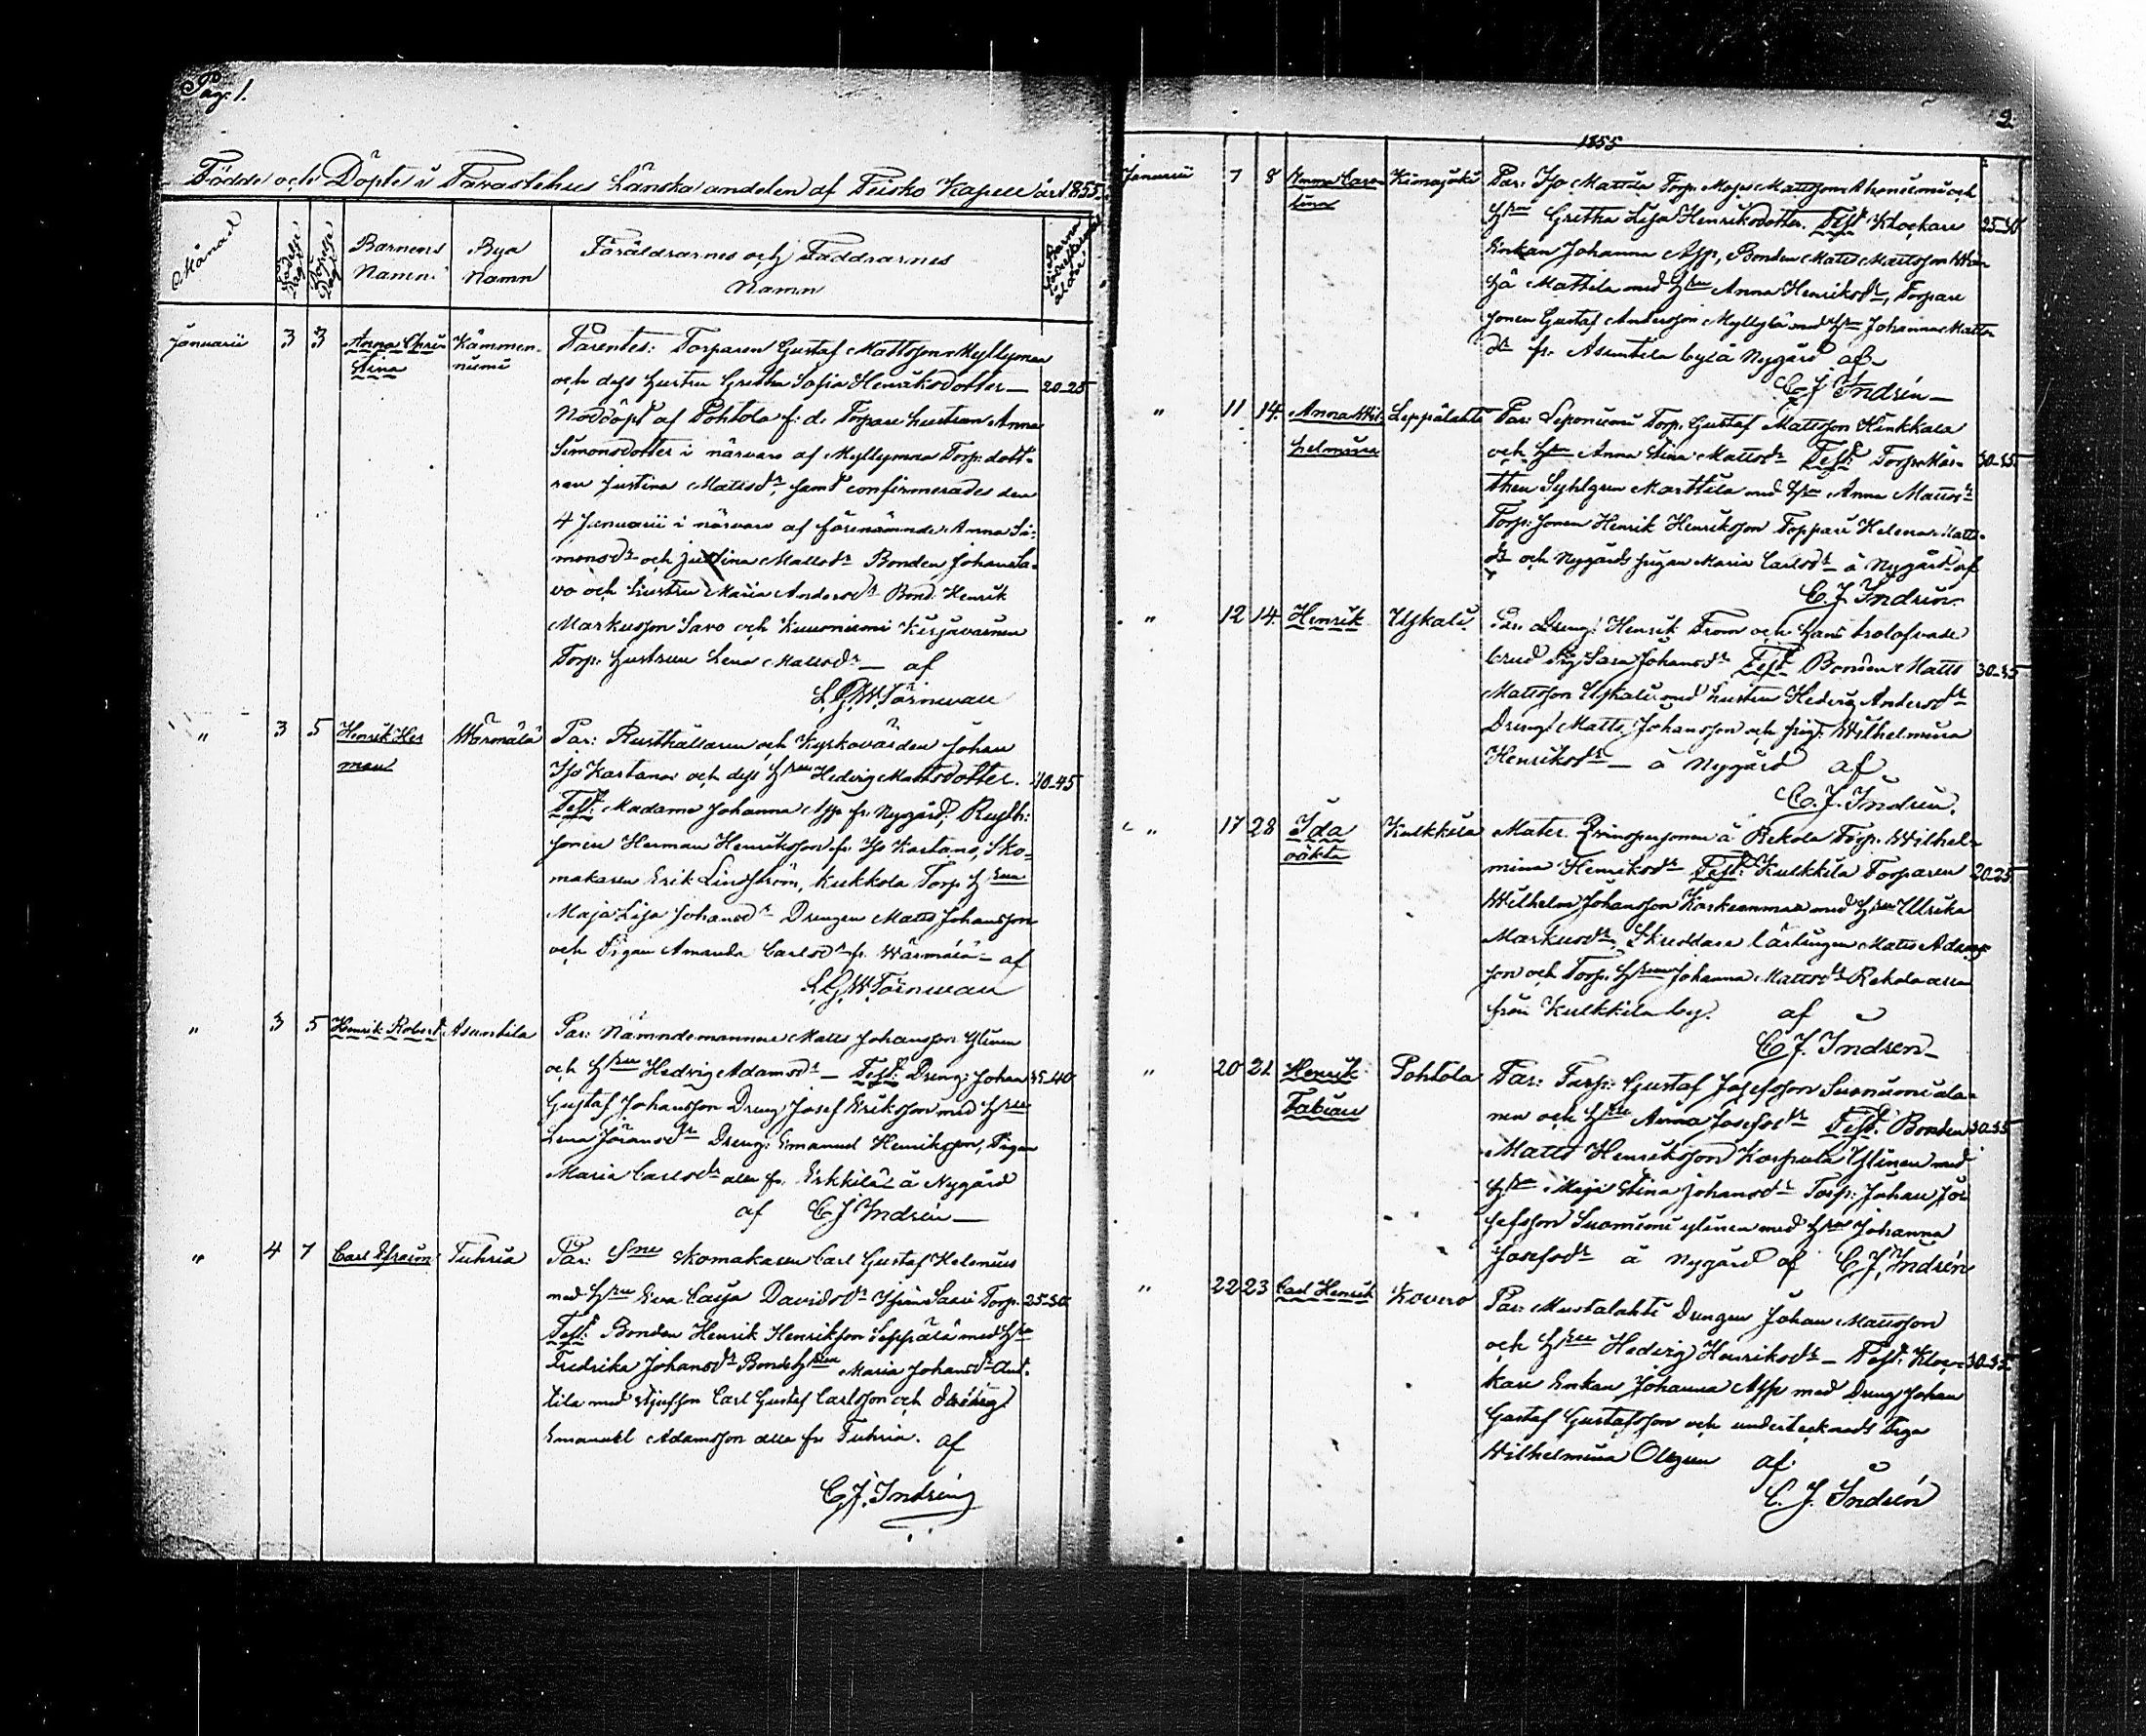 Page 1.
Födde och Döpte i Tavastehus Länska andelen af Teisko Kapell år 1855.
Månad
Födelse Dag
Döpelse Dag
Barnens Namn
Bya Namn
Föräldrarnes och Faddrarnes Namn
Januarii 3 3 Anna Chris Kämmen- Parentes: Torparen Gustaf Mattsson Myllymaa
tina niemi och dess hustru Gretha Sofia Henriksdotter — 20-25
Nöddöpt af Pohtola f: d. Torpare hustrun Anna
Simonsdotter i närvaro af Myllymaa Torp: dott-
ren Justina Mattsdr, samt confirmerades den
4 Januarii i närvaro af förenämnde Anna Si-
monsdr och Justina Mattsdr Bonden Johan Sa-
vo och hustru Maria Andersdr Bond. Henrik
Markusson Savo och
Torp. hustrun Lena Mattsdr — af
L.G.W. Törnwall
" 3 5 Henrik Her Wärmälä Par: Rusthållaren och Kyrkovärden Johan
man Iso Kartano och dess Hru Hedvig Mattsdotter. 40-45
Test: Madame Johanna Asp fr. Nygård, Rusth:
sonen Herman Henriksson fr. Iso Kartano, Sko-
makaren Erik Lindström, Kukkola Torp. Hru
Maja Lisa Johansdr Drengen Matts Johansson
och Pigan Amanda Carlsdr fr. Wärmälä — af
L.G.W. Törnwall
" 3 5 Henrik Robert Asuntila Par: Nämndemannen Matts Johansson Ylinen
och Hru Hedvig Adamsdr — Test: Dreng: Johan 35-40
Gustaf Johansson Dreng Josef Eriksson med Hru
Lena Göransdr Dreng: Emanuel Henriksson, Pigan
Maria Carlsdr alla fr. Erkkilä — å Nygård
af C J Indrén —
" 4 7 Carl Efraim Tuhria Par: Sne Skomakaren Carl Gustaf Helenius
med Hru Eva Caisa Davidsdr Saari Torp. 25-30
Test: Bonden Henrik Henriksson Seppälä med Hru
Fredrika Johansdr Bonde Hru Maria Johansdr Ant-
tila med styfson Carl Gustaf Carlsson och Dreng
Emanuel Adamsson alla fr. Tuhria. af
C. J. Indrén
2
1855
Januarii 7 8 Anna Caro- Kimajoki Par: Iso Mattila Torp. Mattsson och
lina Hru Gretha Lisa Henriksdotter. Test. Klockare 25-30
Enkan Johanna Asp, Bonden Matts Mattsson Wän-
hä Mattila med Hru Anna Henriksdr, Torpare
sonen Gustaf Andersson Myllylä med Hru Johanna Matts-
dr fr. Asuntila by å Nygård af
C J Indrén —
" 11 14. Anna Wil- Leppälahti Par: Leponiemi Torp. Gustaf Mattsson Kinkkala
helmina och Hru Anna Stina Mattsdr Test: Torp. Mår- 30-35
then Syhlgren Marttila med Hru Anna Mattsdr
Torp: sonen Henrik Henriksson Toppari Helena Matts-
dr och Nygårds pigan Maria Carlsdr — å Nygård af
C. J. Indrén.
" 12 14 Henrik Uskali. Par. Dreng: Henrik From och hans trolofvade
brud Pig. Sara Johansdr Test. Bonden Matts 30-35
Mattsson Uskali med hustru Hedvig Andersdr
Dreng: Matts Johansson och pig: Wilhelmina
Henriksdr — å Nygård af
C. J. Indrén.
" 17 28 Ida Kulkkila Mater. Qvinspersonen å Rekola Torp. Wilhel-
oäkta mina Henriksdr Test: Kulkkila Torparen 20-25
Wilhelm Johansson med Hru Ulrika
Markusdr, Skräddare lärlingen Matts Adams-
son och Torp. Hru Johanna Mattsdr Rekola alla
från Kulkkila by. af
C J. Indren —
" 20 21 Henrik Pohtola Par: Torp: Gustaf Josefsson Suoniemi ala-
Fabian nen och Hru Anna Josefsdr Test. Bonden 30-35
Matts Henriksson Korpula Ylinen med
Hru Maja Stina Johansdr Torp: Johan Jo-
sefsson Suoniemi ylinen med Hru Johanna
Josefsdr å Nygård af C J. Indrén
" 22 23 Carl Henrik Kovero Par: Mustalahti Drengen Johan Mattsson
och Hru Hedvig Henriksdr — Test: Kloc- 30-35
kare Enkan Johanna Asp med Dreng Johan
Gustaf Gustafsson och undertecknads Piga
Wilhelmina Olegren af
C. J. Indrén